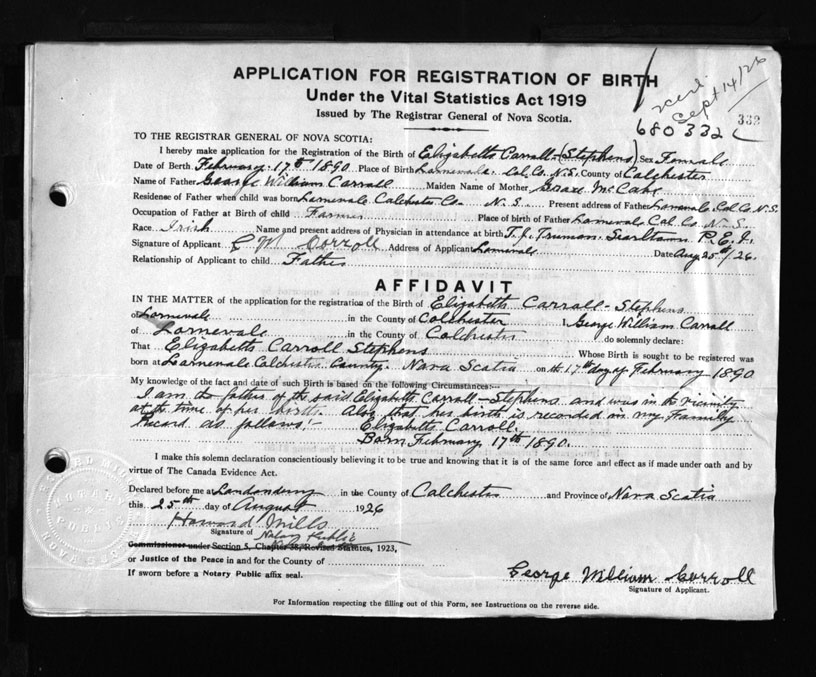 APPLICATION FOR REGISTRATION OF BIRTH
Under the Vital Statistics Act 1919
Issued by The Registrar General of Nova Scotia.
recd. Sept 14/26
332
680332
TO THE REGISTRAR GENERAL OF NOVA SCOTIA:
I hereby make application for the Registration of the Birth of Elizabeth Carroll (Stephens) Sex Female
Date of Birth February 17th 1890 Place of Birth Lornevale Col. Co. N.S. County of Colchester
Name of Father George William Carroll Maiden Name of Mother McCabe
Residence of Father when child was born Lornevale Colchester Co. N. S. Present address of Father Lornevale Col. Co. N. S.
Occupation of Father at Birth of child Farmer Place of birth of Father Lornevale Col. Co. N. S.
Race Irish Name and present address of Physician in attendance at birth T. J. Truman. Searltown P. E. I.
Signature of Applicant Corroll Address of Applicant Lornevale Date Aug 25th/26.
Relationship of Applicant to child Father
AFFIDAVIT
IN THE MATTER of the application for the registration of the Birth of Elizabeth Carroll-Stephens
of Lornevale in the County of Colchester I George William Carroll
of Lornevale in the County of Colchester do solemnly declare:
That Elizabeth Carroll Stephens Whose Birth is sought to be registered was
born at Lornevale Colchester County. Nova Scotia on the 17th day of February 1890
My knowledge of the fact and date of such Birth is based on the following Circumstances:—
I am the father of the said Elizabeth Carroll-Stephens and was in the vicinity
at the time of her birth. Also that her birth is recorded in my Family
Record as follows:- Elizabeth Carroll.
Born February 17th 1890.
I make this solemn declaration conscientiously believing it to be true and knowing that it is of the same force and effect as if made under oath and by
virtue of The Canada Evidence Act.
Declared before me at Londonderry in the County of Colchester and Province of Nova Scotia
this 25th day of August 1926
Howard Mills
Signature of Notary Public
Commissioner under Section 5, Chapter 38, Revised Statutes, 1923,
or Justice of the Peace in and for the County of
If sworn before a Notary Public affix seal.
NOTARY PUBLIC
NOVA SCOTIA
George William Corroll
Signature of Applicant.
For Information respecting the filling out of this Form, see Instructions on the reverse side.